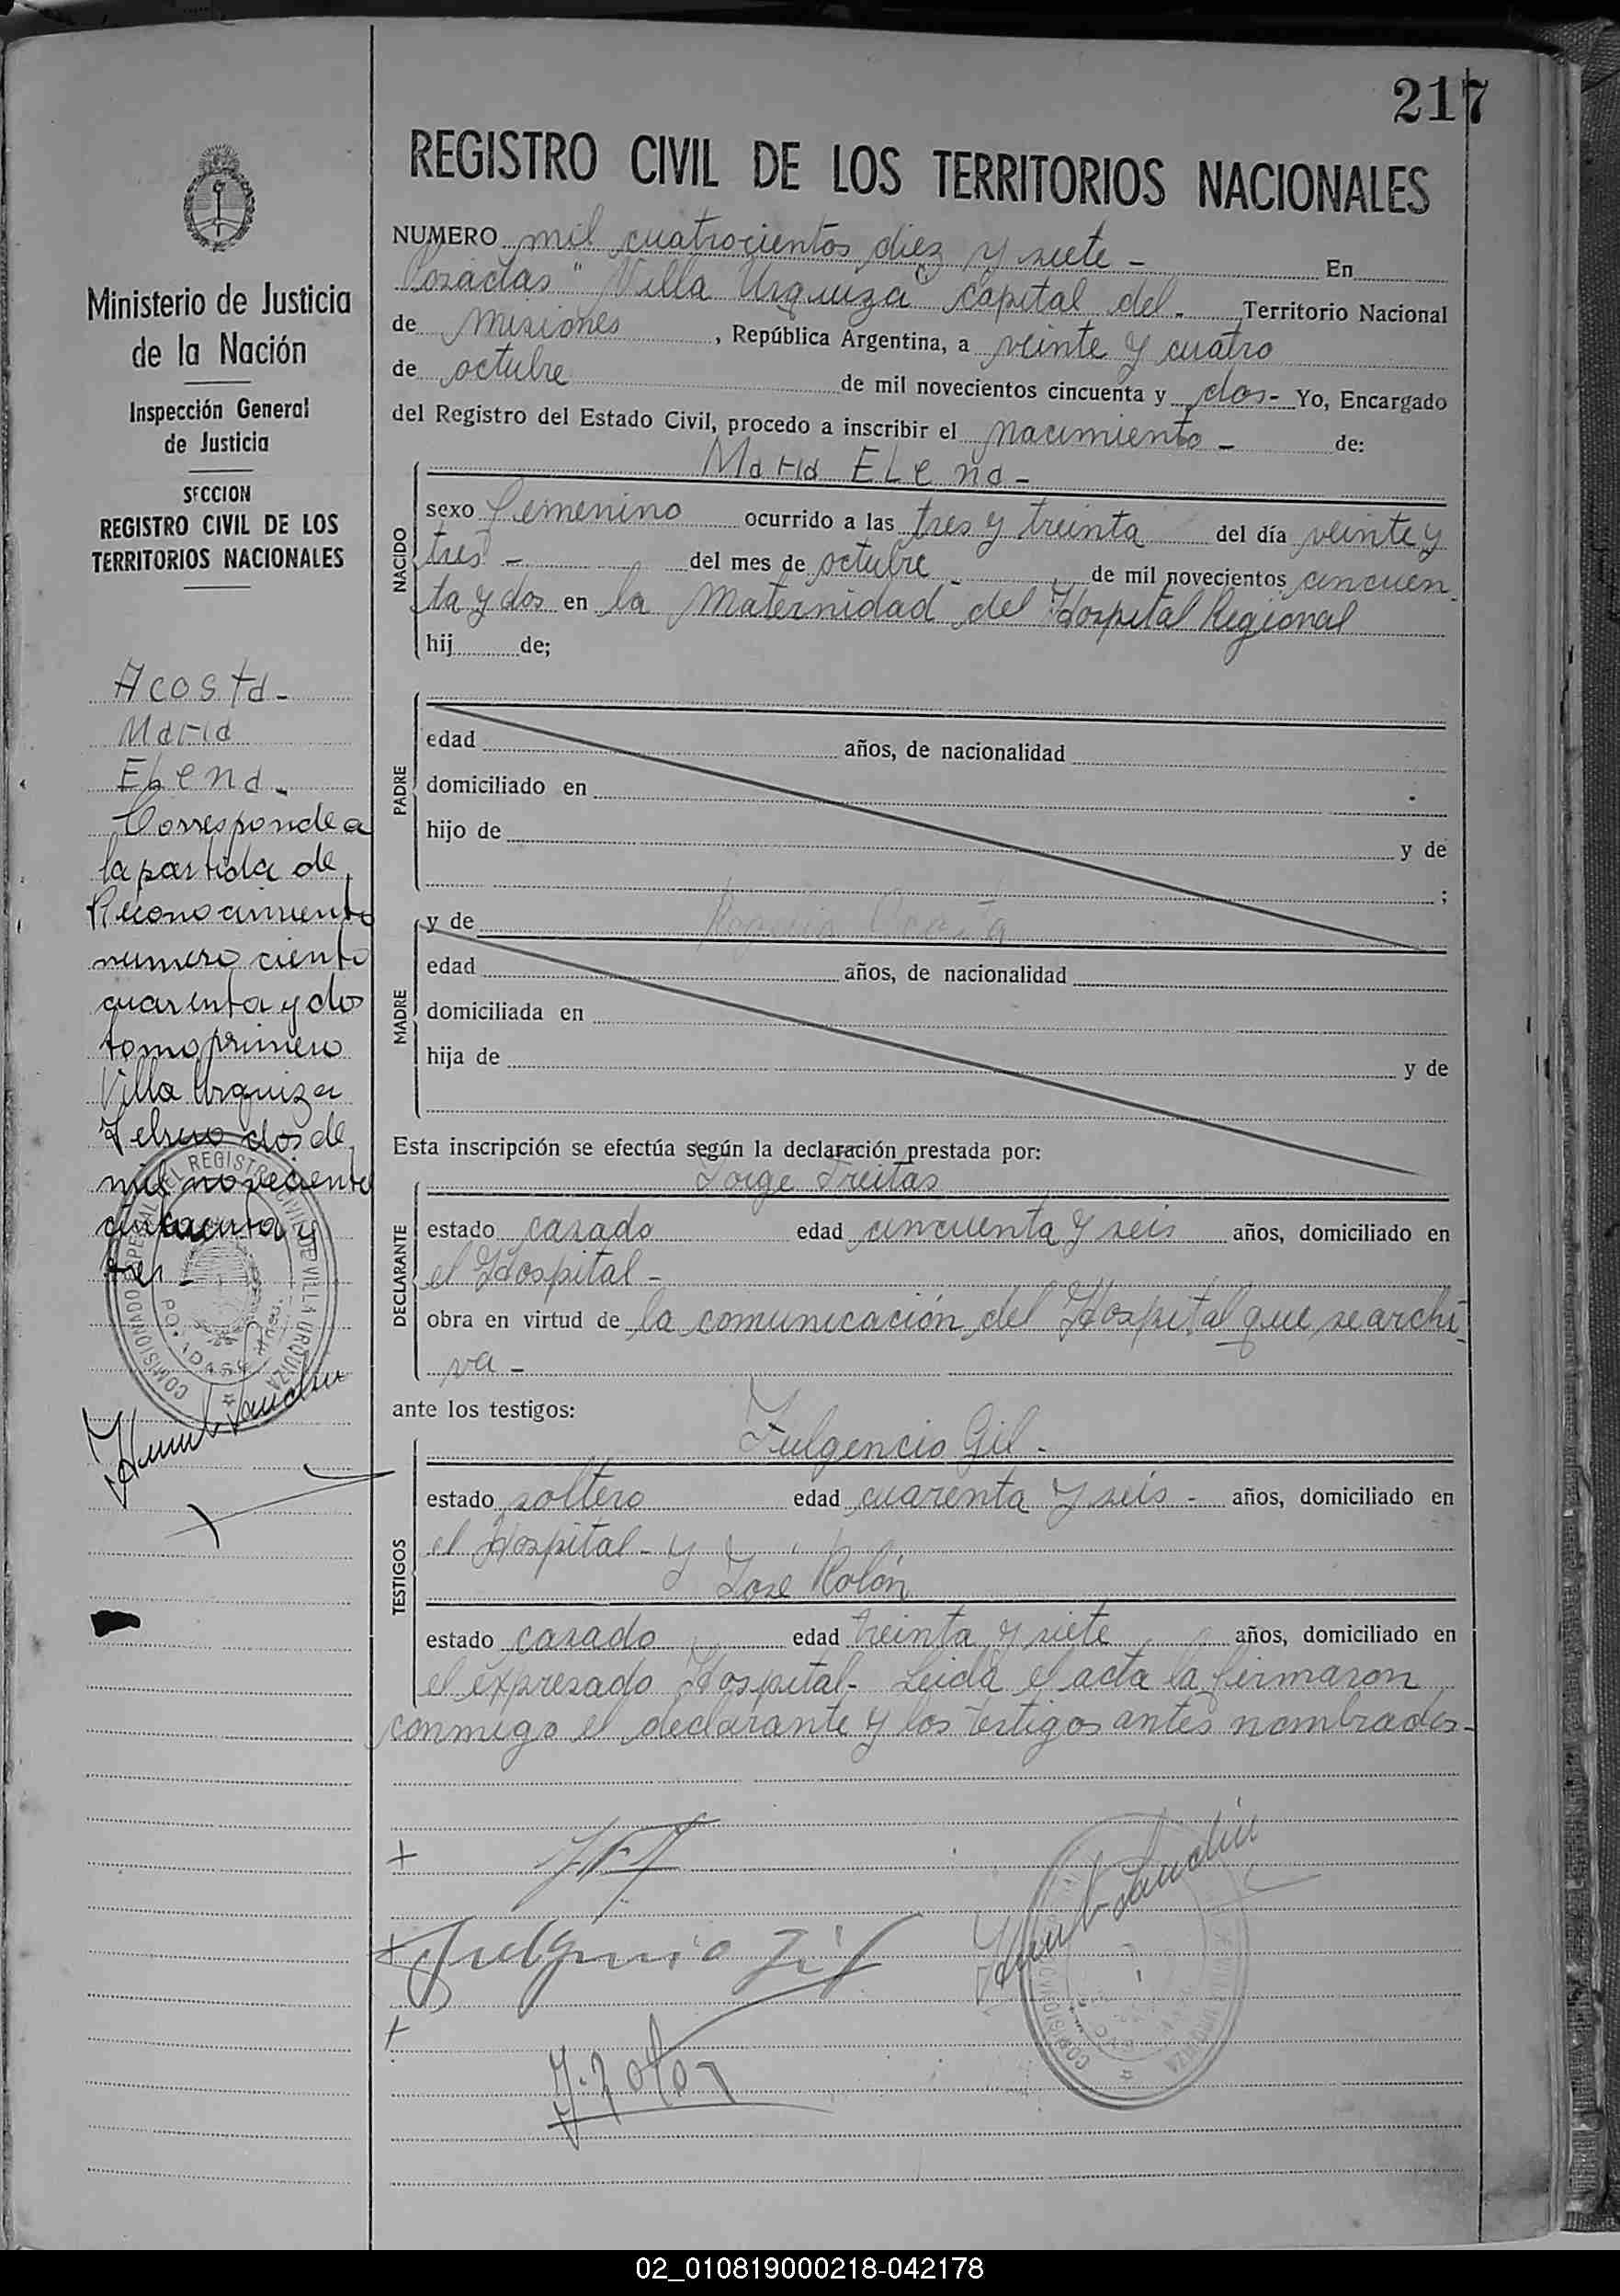 217
REGISTRO CIVIL DE LOS TERRITORIOS NACIONALES
Ministerio de Justicia
de la Nación
Inspección General
de Justicia
SECCION
REGISTRO CIVIL DE LOS
TERRITORIOS NACIONALES
Acosta -
Maria
Elena -
Corresponde a
la partida de
Reconocimiento
numero ciento
cuarenta y dos
tomo primero
Villa Urquiza
Febrero dos de
mil novecientos
cincuenta y
tres -
NUMERO mil cuatrocientos diez y siete - En
Posadas "Villa Urquiza" Capital del - Territorio Nacional
de Misiones, República Argentina, a veinte y cuatro
de octubre de mil novecientos cincuenta y dos - Yo, Encargado
del Registro del Estado Civil, procedo a inscribir el nacimiento - de:
Maria Elena -
NACIDO
sexo femenino ocurrido a las tres y treinta del día veinte y
tres - del mes de octubre - de mil novecientos cincuen
ta y dos en la Maternidad del Hospital Regional
hij de;
PADRE
edad años, de nacionalidad
domiciliado en
hijo de y de
;
MADRE
y de
edad años, de nacionalidad
domiciliada en
hija de y de
Esta inscripción se efectúa según la declaración prestada por:
Jorge Freitas
DECLARANTE
estado casado edad cincuenta y seis años, domiciliado en
el Hospital -
obra en virtud de la comunicación del Hospital que se archi
va -
ante los testigos:
TESTIGOS
Fulgencio Gil -
estado soltero edad cuarenta y seis - años, domiciliado en
el Hospital - y
José Rolón
estado casado edad treinta y siete años, domiciliado en
el expresado Hospital - Leida el acta la firmaron
conmigo el declarante y los testigos antes nombrados -
Fulgencio Gil
J. Rolon
02_010819000218-042178